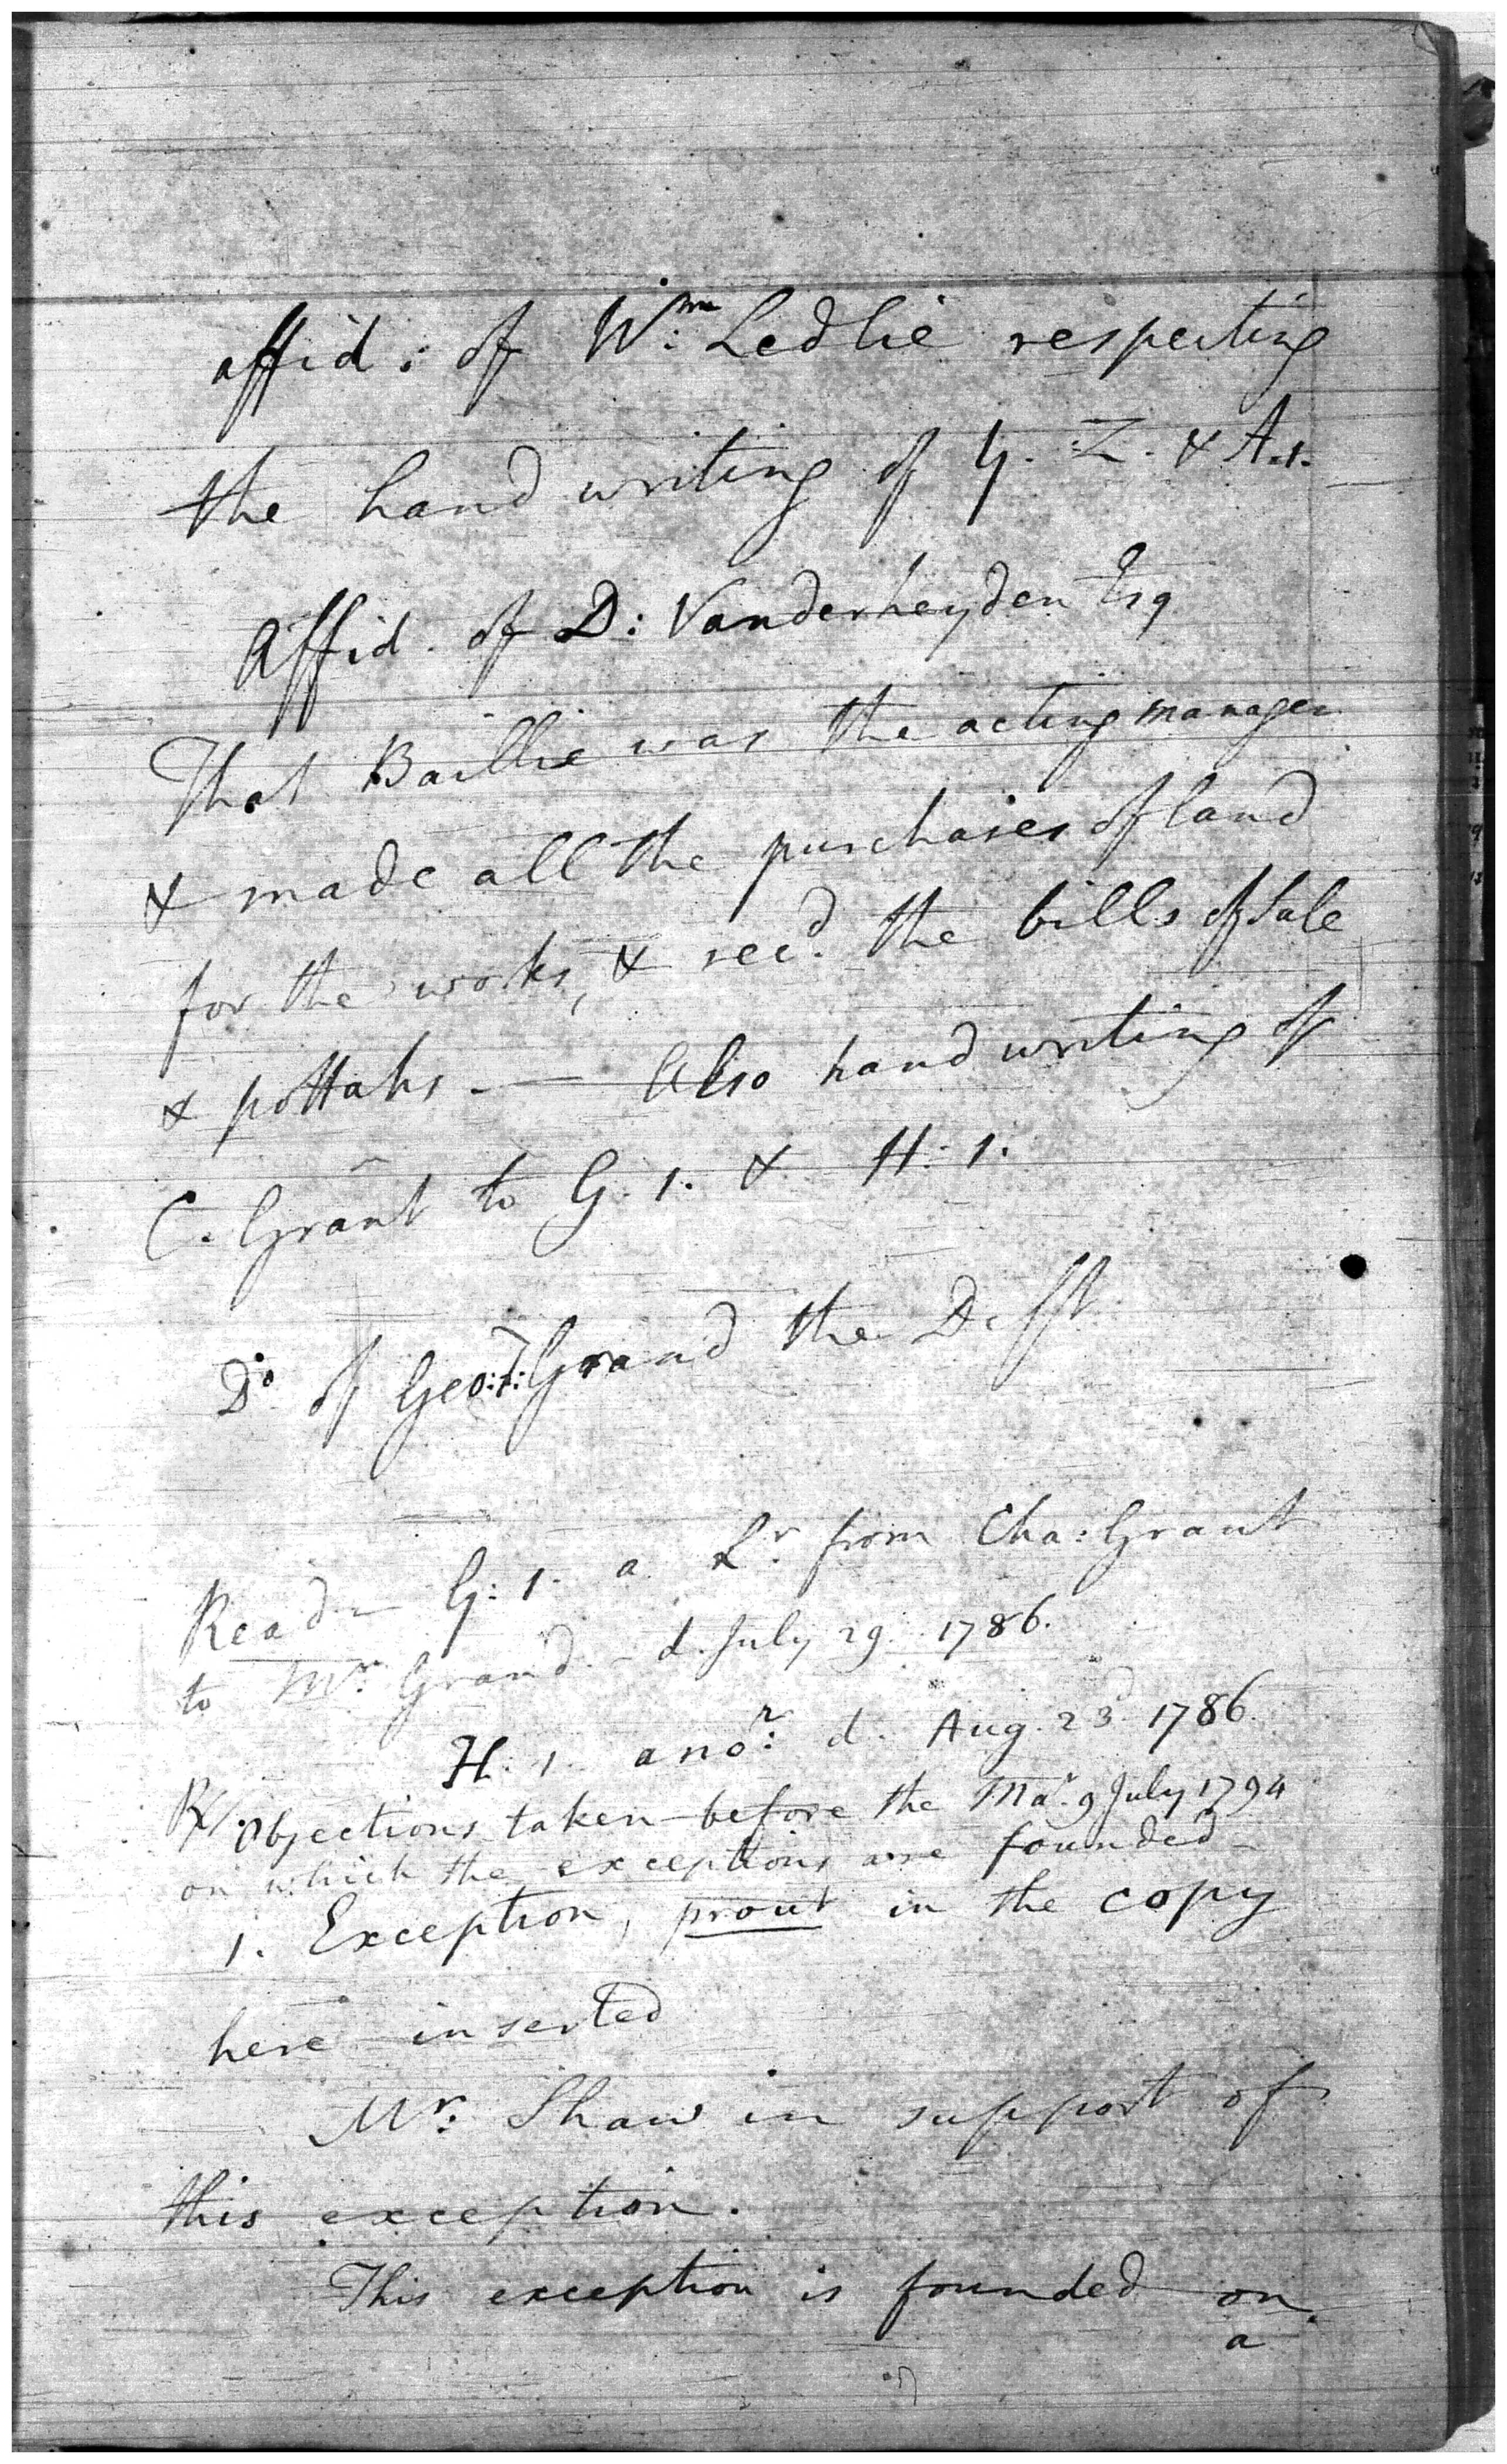 affid: of Wm: Ledlie respecting
the hand writing of Y. Z. & A.1.
Affid. of D: Vanderheyden Esq
That Baillie was the acting manager
& made all the purchases of land
for the works, & recd. the bills of Sale
& pottahs - — Also hand writing of
C. Grant to G. 1. & H. 1.
Do of Geo: F: Grand the Deft
Read — G: 1. a Lr. from Cha: Grant
to Mr. Grand - d. July 29. 1786.
H. 1. anor: d. Aug. 23d 1786.
Objections taken before the Mar. 9 July 1794
on which the exceptions are founded —
1. Exception, prout in the copy
here inserted
Mr: Shaw in support of
this exception.
This exception is founded on
a